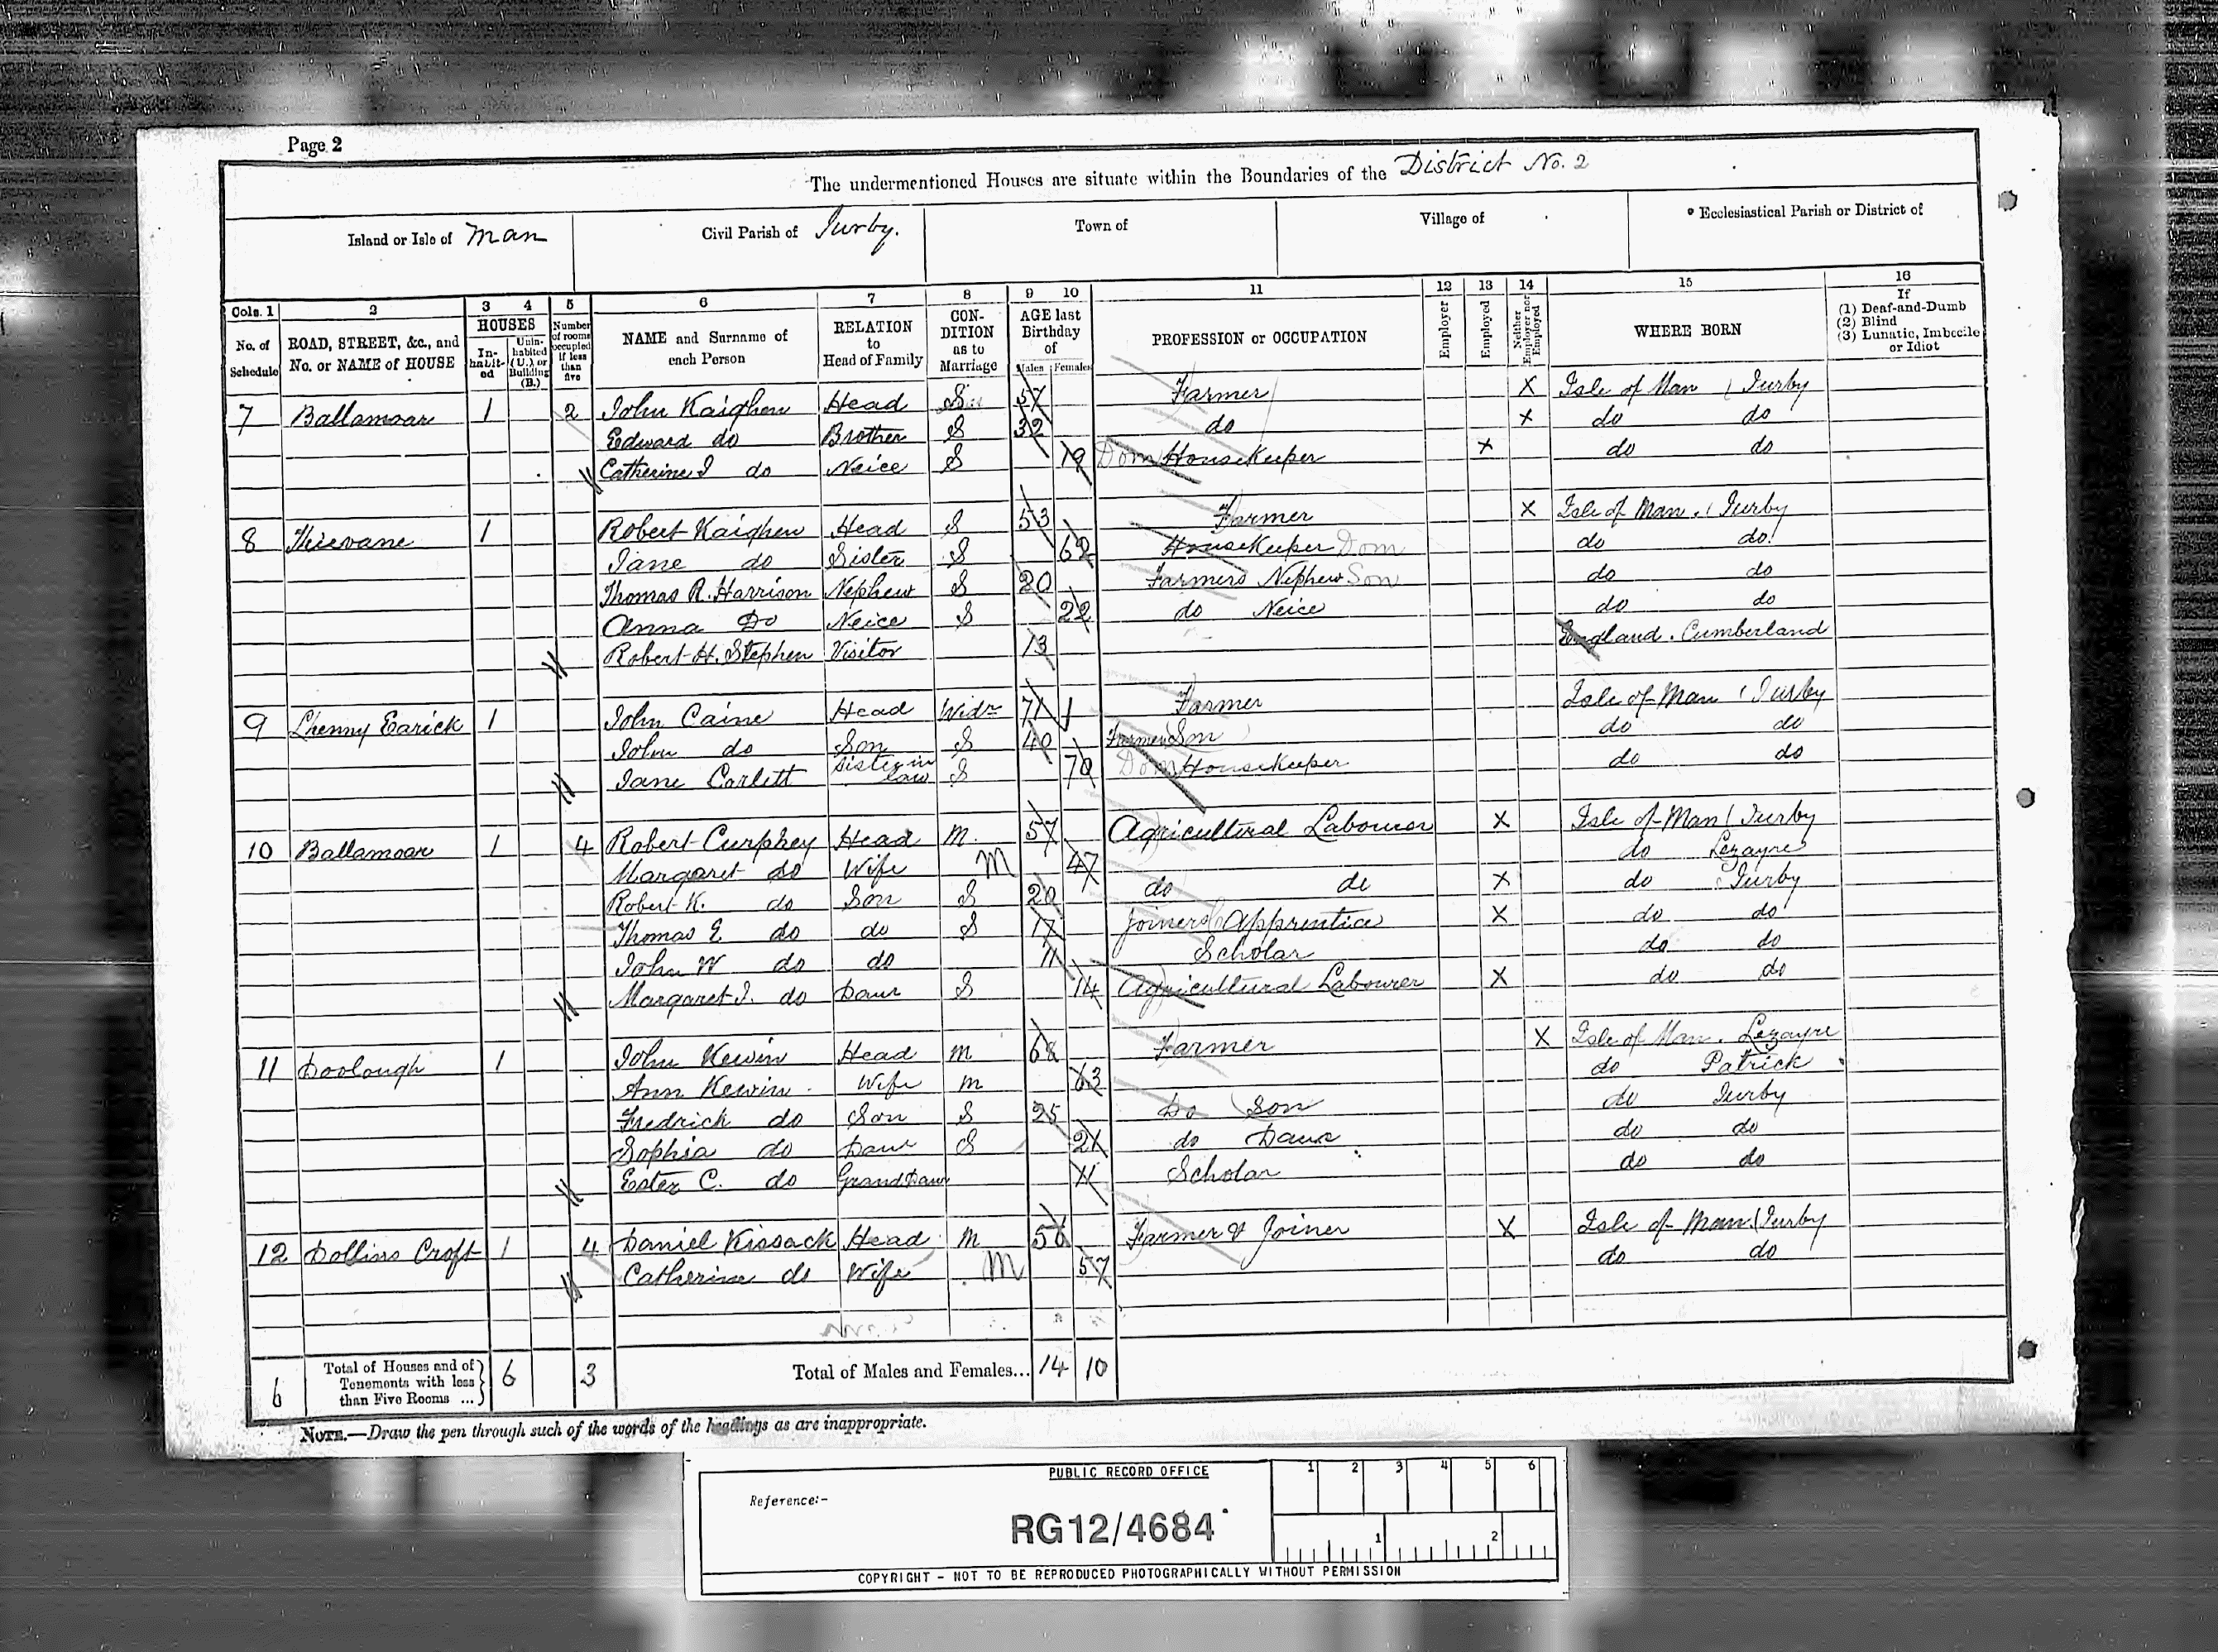 Page 2
The undermentioned Houses are situate within the Boundaries of the District No. 2
Island or Isle of Man Civil Parish of Jurby. Town of Village of Ecclesiastical Parish or District of
Cols. 1 2 3 4 5 6 7 8 9 10 11 12 13 14 15 16
No. of Schedule ROAD, STREET, &c., and No. or NAME of HOUSE HOUSES Inhabited Uninhabited (U.) or Building (B.) Number of rooms occupied if less than five NAME and Surname of each Person RELATION to Head of Family CONDITION as to Marriage AGE last Birthday of Males Females PROFESSION or OCCUPATION Employer Employed Neither Employer nor Employed WHERE BORN If (1) Deaf-and-Dumb (2) Blind (3) Lunatic, Imbecile or Idiot
7 Ballamoar 1 2 John Kaighen Head S 57 Farmer X Isle of Man Jurby
Edward do Brother S 32 do x do do
Catherine J do Neice S 19 Dom HouseKeeper x do do
8 1 Robert Kaighen Head S 53 Farmer X Isle of Man. Jurby
Jane do Sister S 62 HouseKeeper Dom do do
Thomas R. Harrison Nephew S 20 Farmers Nephew Son do do
Anna Do Neice S 22 do Neice do do
Robert H. Stephen Visitor 13 England. Cumberland
9 Lhenny Earick 1 John Caine Head Widr 71 Farmer Isle of Man Jurby
John do Son S 40 Farmers Son do do
Jane Corlett Sister in law S 70 Dom HouseKeeper do do
10 Ballamoar 1 4 Robert Curphey Head M. 57 Agricultural Labourer X Isle of Man Jurby
Margaret do Wife M 47 do Lezayre
Robert K. do Son S 20 do do X do Jurby
Thomas E. do do S 17 Joiners Apprentice X do do
John W do do 11 Scholar do do
Margaret J. do Daur S 14 Agricultural Labourer X do do
11 Doolough 1 John Kewin Head M 68 Farmer X Isle of Man. Lezayre
Ann Kewin Wife M 63 do Patrick
Fredrick do Son S 25 Do Son do Jurby
Sophia do Daur S 21 do Daur do do
Ester C. do GrandDaur 11 Scholar do do
12 Dollins Croft 1 4 Daniel Kissack Head M 56 Farmer & Joiner X Isle of Man Jurby
Catherine do Wife M 57 do do
6 Total of Houses and of Tenements with less than Five Rooms ... 6 3 Total of Males and Females... 14 10
NOTE.—Draw the pen through such of the words of the headings as are inappropriate.
PUBLIC RECORD OFFICE 1 2 3 4 5 6
Reference:-
RG12/4684 1 2
COPYRIGHT - NOT TO BE REPRODUCED PHOTOGRAPHICALLY WITHOUT PERMISSION